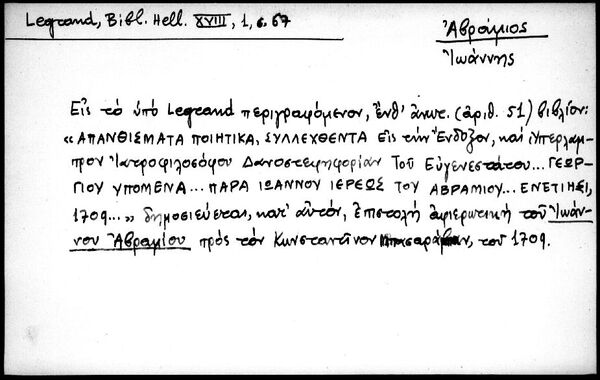 Legrand, Bibl. Hell. XVIII, 1, σ. 67
Ἀβράμιος
Ἰωάννης
Εἰς τὸ ὑπὸ Legrand περιγραφόμενον, ἔνθ' ἀνωτ. (ἀριθ. 51) βιβλίον:
« ΑΠΑΝΘΙΣΜΑΤΑ ΠΟΙΗΤΙΚΑ, ΣΥΛΛΕΧΘΕΝΤΑ Εἰς τὴν Ἔνδοξον, καὶ Ὑπερλαμ-
προν Ἰατροφιλοσόφου Δαφοστεφηφορίαν Τοῦ Εὐγενεστάτου... ΓΕΩΡ-
ΓΙΟΥ ΥΠΟΜΕΝΑ... ΠΑΡΑ ΙΩΑΝΝΟΥ ΙΕΡΕΩΣ ΤΟΥ ΑΒΡΑΜΙΟΥ... ΕΝΕΤΙΗΣΙ,
1709... » δημοσιεύεται, κατ' αὐτόν, ἐπιστολὴ ἀφιερωτικὴ τοῦ Ἰωάν-
νου Ἀβραμίου πρὸς τὸν Κωνσταντῖνον, τοῦ 1709.